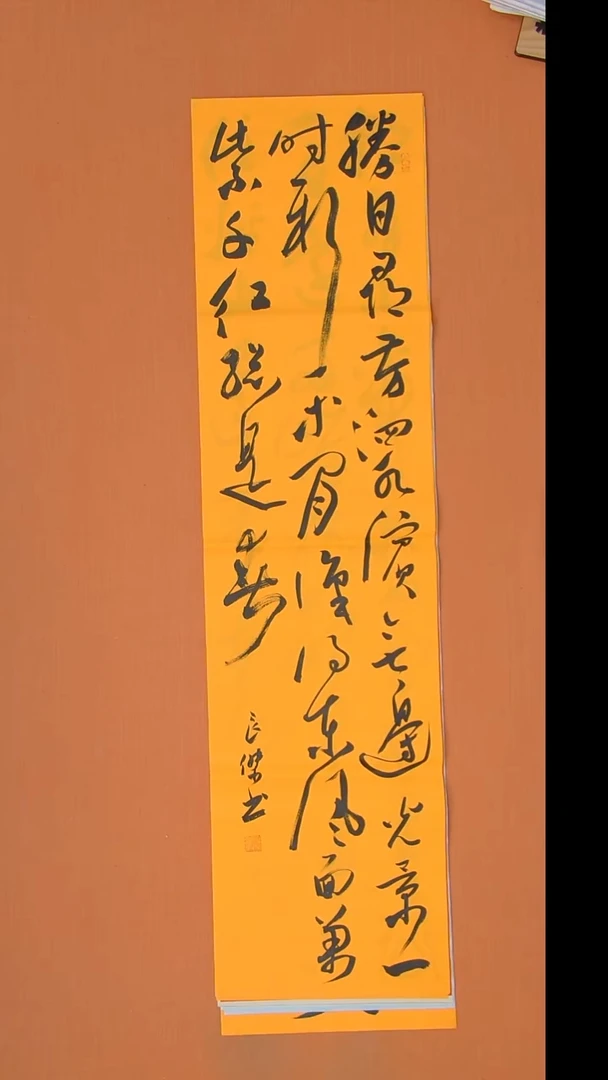 勝日尋芳泗水濱無邊光景一
时新等閒識得東風面萬
紫千红總是春
良傑书